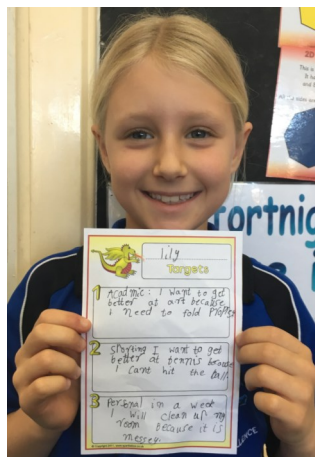 20
This is
It h
and
fortnig
lily
Targets
1 Academic: I want to get
better at art because
i need to fold
2 Sporting I want to get
better at tennis because
I cant hit the ball
3 Personal in a week
I will clean up my
room because it is
messey.